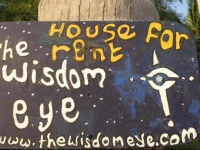 House for
rent
the
wisdom
eye
www.thewisdomeye.com